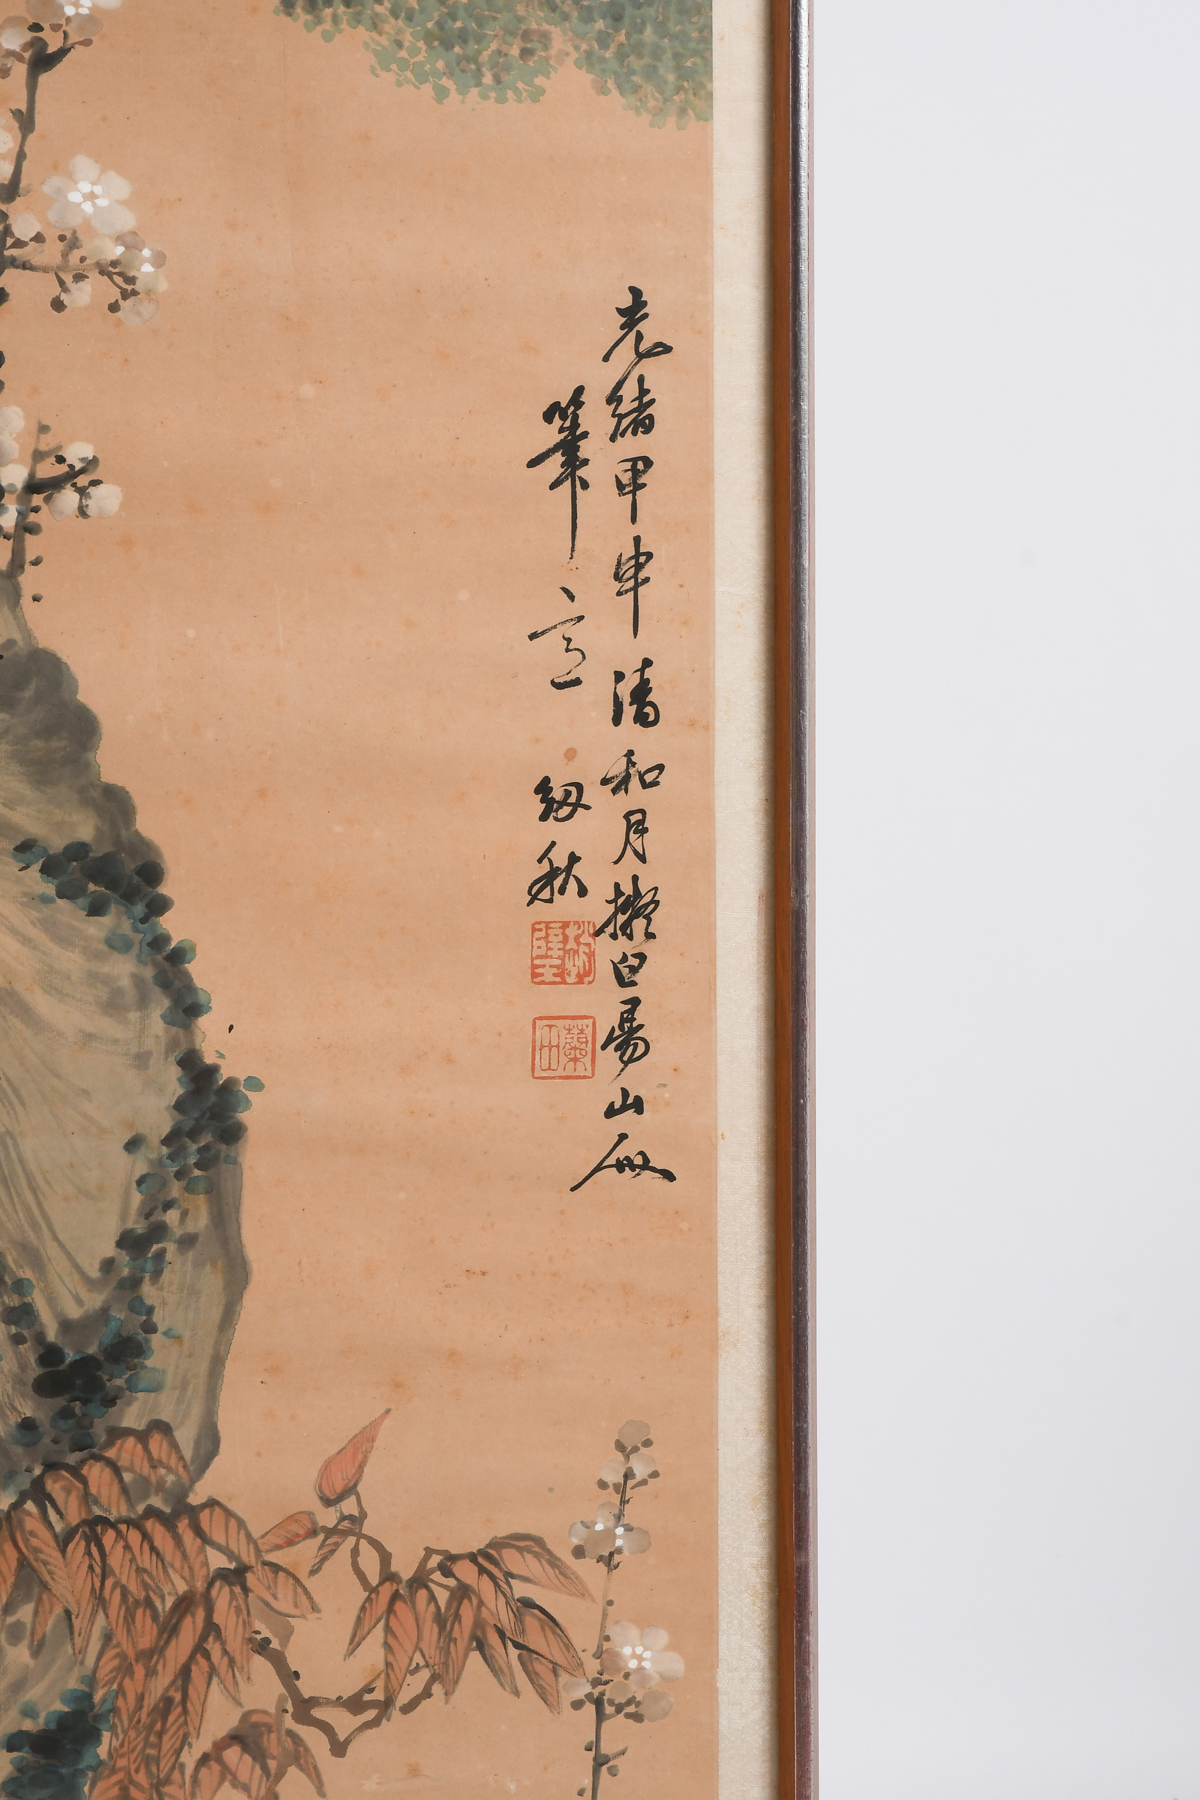 光緒甲申清和月擬白昜山㢲
筆意 紉秋